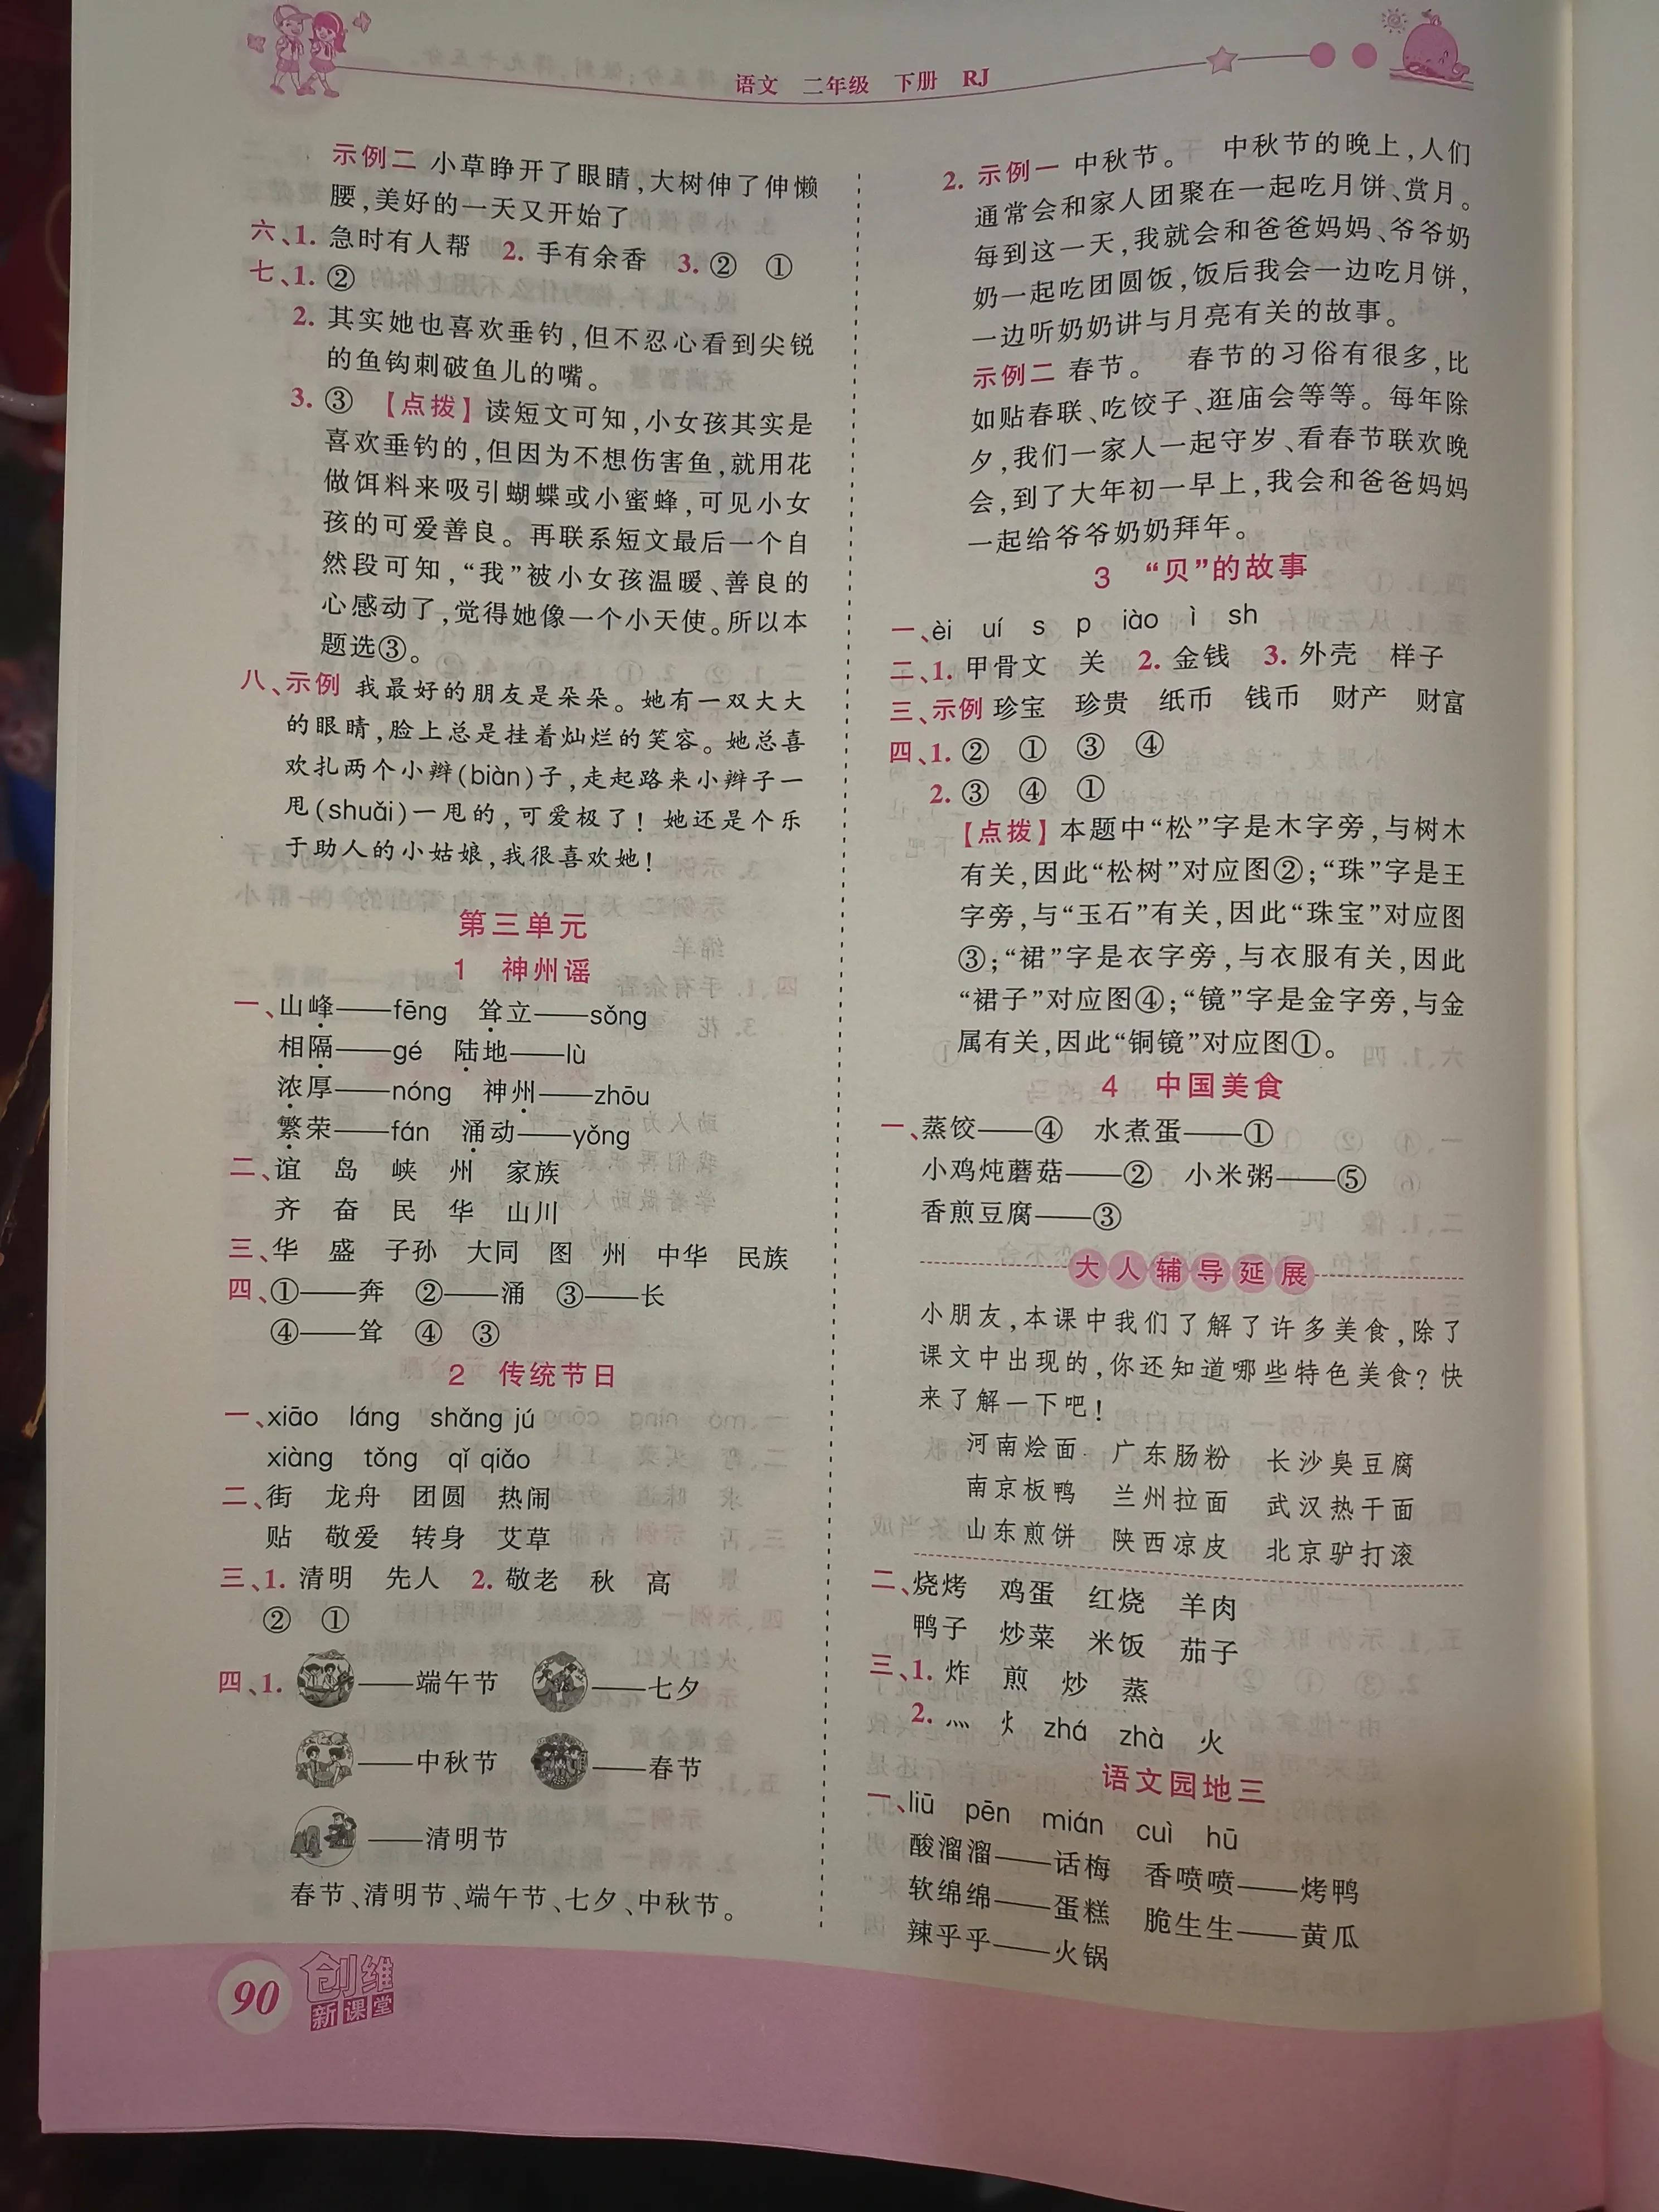 语文 二年级 下册 RJ
示例二 小草睁开了眼睛,大树伸了伸懒
腰,美好的一天又开始了
六、1. 急时有人帮 2. 手有余香 3. ② ①
七、1. ②
2. 其实她也喜欢垂钓,但不忍心看到尖锐
的鱼钩刺破鱼儿的嘴。
3. ③ 【点拨】读短文可知,小女孩其实是
喜欢垂钓的,但因为不想伤害鱼,就用花
做饵料来吸引蝴蝶或小蜜蜂,可见小女
孩的可爱善良。再联系短文最后一个自
然段可知,“我”被小女孩温暖、善良的
心感动了,觉得她像一个小天使。所以本
题选③。
八、示例 我最好的朋友是朵朵。她有一双大大
的眼睛,脸上总是挂着灿烂的笑容。她总喜
欢扎两个小辫(biàn)子,走起路来小辫子一
甩(shuǎi)一甩的,可爱极了!她还是个乐
于助人的小姑娘,我很喜欢她!
第三单元
1 神州谣
一、山峰——fēng 耸立——sǒng
相隔——gé 陆地——lù
浓厚——nóng 神州——zhōu
繁荣——fán 涌动——yǒng
二、谊 岛 峡 州 家族
齐 奋 民 华 山川
三、华 盛 子孙 大同 图 州 中华 民族
四、①——奔 ②——涌 ③——长
④——耸 ④ ③
2 传统节日
一、xiāo láng shǎng jú
xiàng tǒng qǐ qiǎo
二、街 龙舟 团圆 热闹
贴 敬爱 转身 艾草
三、1. 清明 先人 2. 敬老 秋 高
② ①
四、1. ——端午节 ——七夕
——中秋节 ——春节
——清明节
春节、清明节、端午节、七夕、中秋节。
2. 示例一 中秋节。 中秋节的晚上,人们
通常会和家人团聚在一起吃月饼、赏月。
每到这一天,我就会和爸爸妈妈、爷爷奶
奶一起吃团圆饭,饭后我会一边吃月饼,
一边听奶奶讲与月亮有关的故事。
示例二 春节。 春节的习俗有很多,比
如贴春联、吃饺子、逛庙会等等。每年除
夕,我们一家人一起守岁、看春节联欢晚
会,到了大年初一早上,我会和爸爸妈妈
一起给爷爷奶奶拜年。
3 “贝”的故事
一、èi uí s p iào ì sh
二、1. 甲骨文 关 2. 金钱 3. 外壳 样子
三、示例 珍宝 珍贵 纸币 钱币 财产 财富
四、1. ② ① ③ ④
2. ③ ④ ①
【点拨】本题中“松”字是木字旁,与树木
有关,因此“松树”对应图②;“珠”字是王
字旁,与“玉石”有关,因此“珠宝”对应图
③;“裙”字是衣字旁,与衣服有关,因此
“裙子”对应图④;“镜”字是金字旁,与金
属有关,因此“铜镜”对应图①。
4 中国美食
一、蒸饺——④ 水煮蛋——①
小鸡炖蘑菇——② 小米粥——⑤
香煎豆腐——③
大人辅导延展
小朋友,本课中我们了解了许多美食,除了
课文中出现的,你还知道哪些特色美食?快
来了解一下吧!
河南烩面 广东肠粉 长沙臭豆腐
南京板鸭 兰州拉面 武汉热干面
山东煎饼 陕西凉皮 北京驴打滚
二、烧烤 鸡蛋 红烧 羊肉
鸭子 炒菜 米饭 茄子
三、1. 炸 煎 炒 蒸
2. 灬 火 zhá zhà 火
语文园地三
一、liū pēn mián cuì hū
酸溜溜——话梅 香喷喷——烤鸭
软绵绵——蛋糕 脆生生——黄瓜
辣乎乎——火锅
90 创维
新课堂